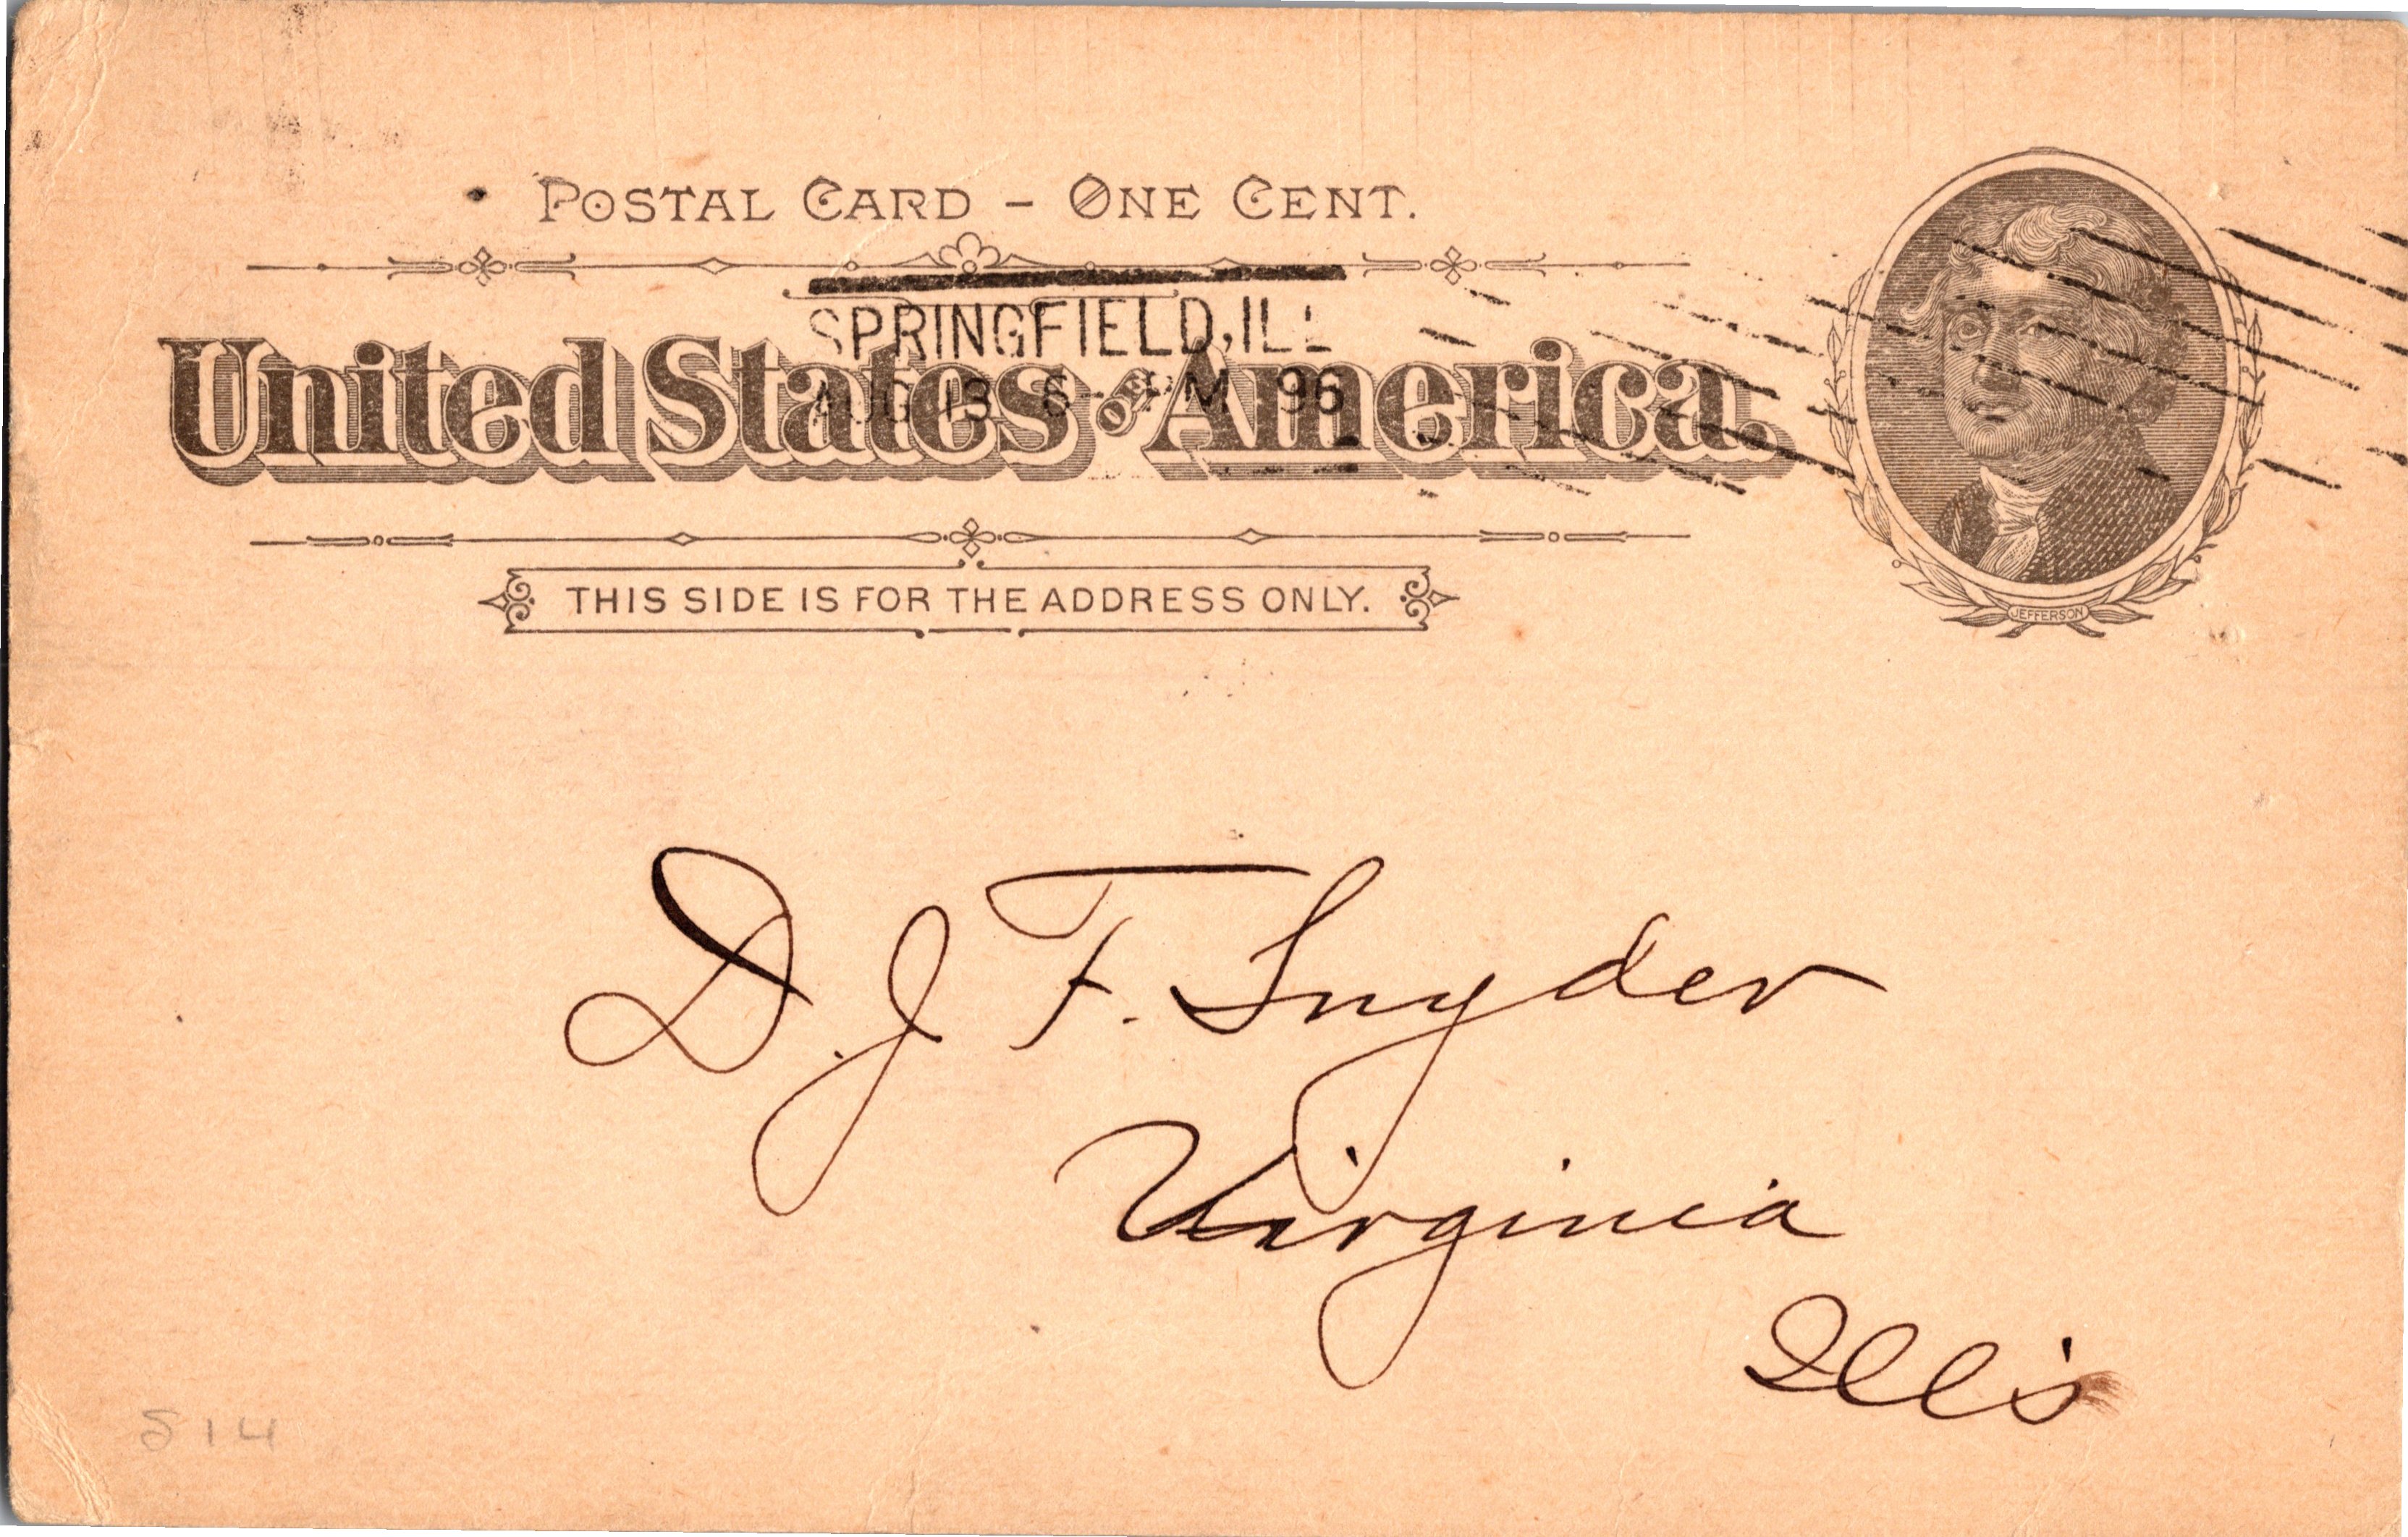 POSTAL CARD - ONE CENT.
SPRINGFIELD, ILL
AUG 13 6 - PM 96
United States OF America.
THIS SIDE IS FOR THE ADDRESS ONLY.
JEFFERSON
D. J F. Snyder
Virginia
Ills
S14